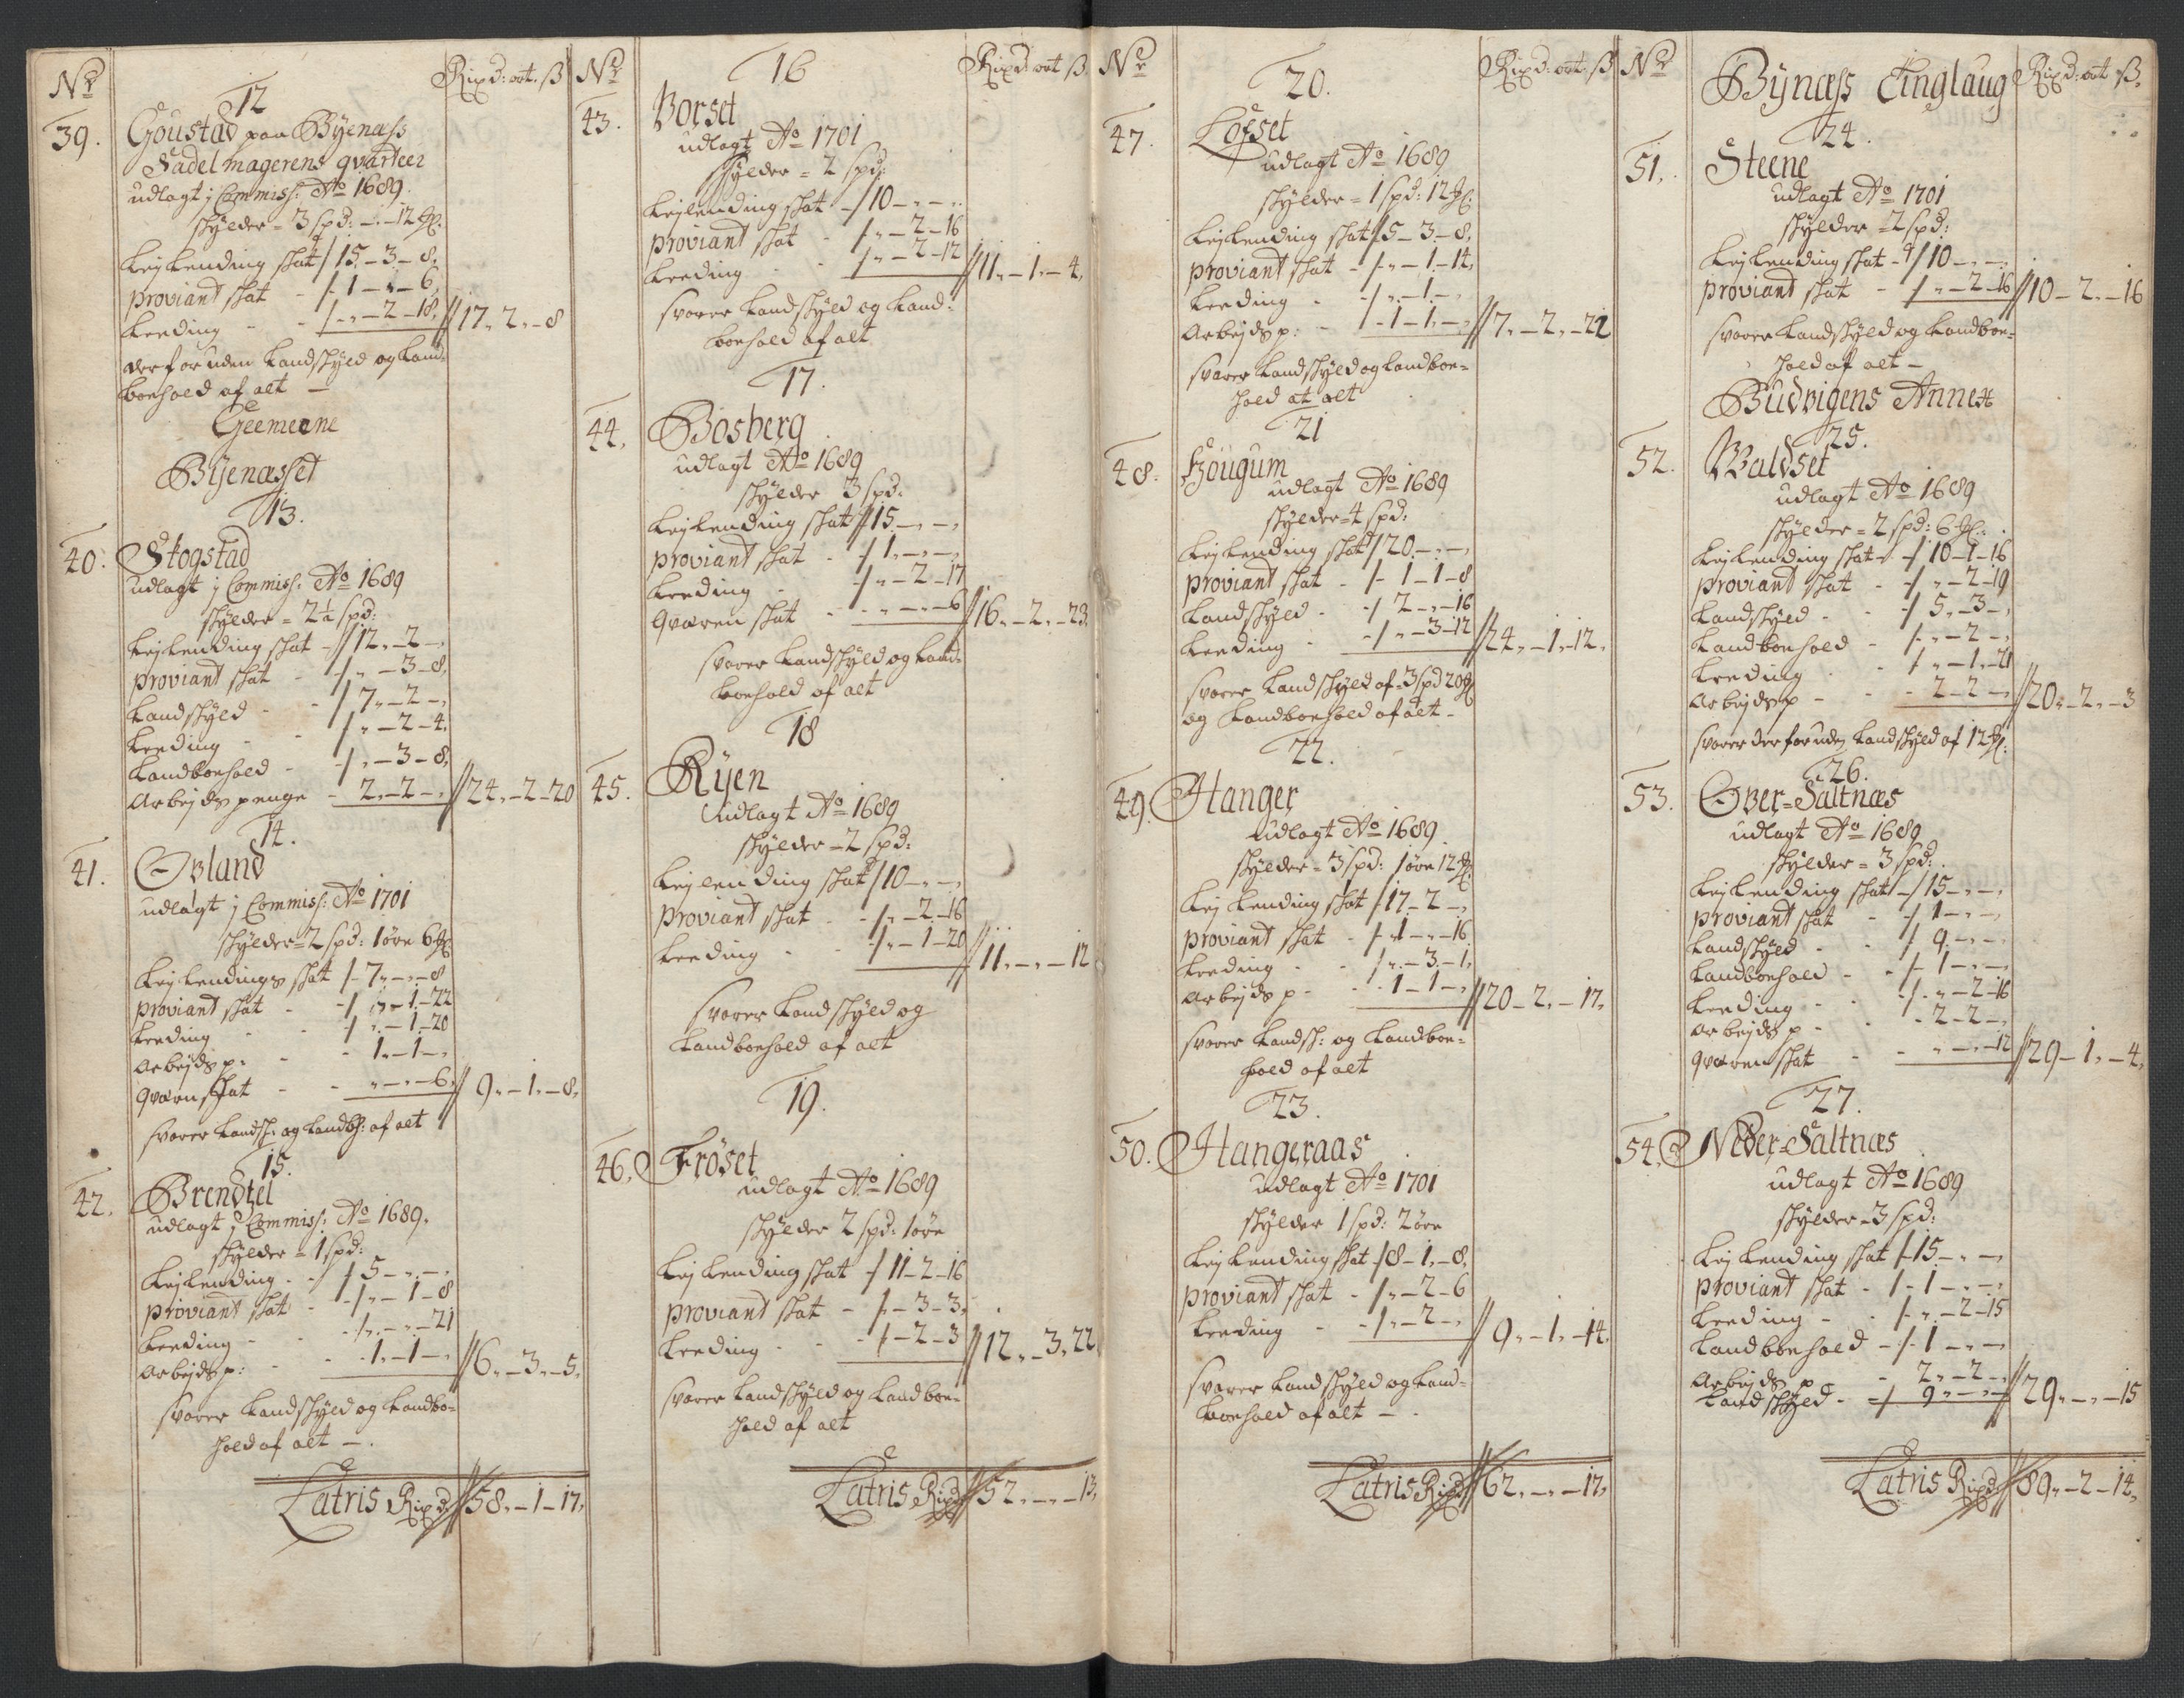 Nr
Rixd: ort. ß
12
39. Goustad paa Byenæss
Sadelmagerens qvarteer
udlagt j Commiss: Ao 1689.
skylder = 3 spd: - - 12 Mk:
Leylending skat / 15 - 3 - 8,
proviant skat - / 1 - " - 6,
Leeding - - / - " - 2 - 18, // 17, 2, - 8
derforuden Landskyld og Land-
boehold af alt -
Geemeene
Byenæsset
13.
40. Stogstad
udlagt j Commiss: Ao 1689
skylder = 2½ spd:
Leylending skat - // 12, - 2 - ,
proviant skat - / " - 3 - 8,
Landskyld - - / 7, - 2 - ,
Leeding - - / " - 2 - 4.
Landboehold - / , - 3 - 8,
Arbejdspenge - 2, - 2 - , // 24, - 2 - 20
14.
41. Øvland
udlagt j Commiss: Ao 1701
skylder = 2 spd: 1 øre 6 Mk
Leylendings skat / - 7, - , - 8
proviant skat - / " - 1 - 22
Leeding - / , - 1 - 20
Arbejds p: - - 1, - 1 - ,
Qværnskat - - " - , - 6, // 9, - 1, - 8,
svarer Landsk: og Landbh: af alt
15.
42. Brendzel
udlagt j Commiss: Ao 1689.
skylder = 1 spd:
Leylending - - / 5 - , - ,
proviant skat - / , - 1 - 8
Leeding - - / , - , - 21
Arbejdsp: - - 1, - 1 - , // 6, - 3, - 5,
svarer Landskyld og Landbo-
hold af alt - .
Latris Rixd // 58, - 1 - 17,
Nr
Rixd: ort ß
16
43. Borset
udlagt Ao 1701
skylder = 2 spd:
Leylending skat - / 10 - , - ,
proviant skat - / " - 2 - 16
Leeding - - / " - 2 - 12 // 11, - 1, - 4,
svarer Landskyld og Land-
boehold af alt
17.
44. Bosberg
udlagt Ao 1689
skylder 3 spd.
Leylending skat // 15 - , - ,
proviant skat - / 1, - , - ,
Leeding - / " - 2 - 17
Qværen skat - - , - , - 6 // 16, - 2, - 23.
svarer Landskyld og Land-
boehold af alt
18
45. Ryen
udlagt Ao 1689
skylder - 2 spd:
Leylending skat / 10 - , - ,
proviant skat - / " - 2 - 16
Leeding - - / " - 1 - 20 // 11, - , - 12
svarer Landskyld og
Landboehold af alt
19.
46. Frøset
udlagt Ao 1689
skylder 2 spd: 1 øre
Leylending skat - / 11 - 2 - 16
proviant skat - / - 3 - 3,
Leeding - - / - 2 - 3 // 12, - 3, 22
svarer Landskyld og Landboe-
hold af alt
Latris Rixd // 52, - , - 13,
Nr
Rixd: ort. ß
20.
47. Lofset
udlagt Ao 1689
skylder = 1 spd: 12 Mk:
Leylending skat / 5 - 3 - 8,
proviant skat - / , - 1 - 14,
Leeding - - / , - 1 - ,
Arbejds p: - / - 1 - 1, - , // 7, - 2, - 22
svarer Landskyld og Landboe-
hold at alt
21
48. Hougum
udlagt Ao 1689
skylder = 4 spd:
Leylending skat / 20 - , - ,
proviant skat - / - 1 - 1 - 8
Landskyld - - / 2 - , - 16
Leeding - - / , - 3 - 12 // 24, - 1, - 12,
svarer Landskyld af = 3 spd 20 Mk
og Landboehold af alt -
22.
49. Hanger
udlagt Ao 1689
skylder = 3 spd: 1 øre 12 Mk:
Leylending skat / 17 - 2 - ,
proviant skat - / 1 - , - 16
Leeding - - / , - 3 - 1,
Arbejds p - - 1 - 1 - , // 20 - 2, - 17,
svarer Landsk: og Landboe-
hold af alt
23.
50. Hangeraas
udlagt Ao 1701
skylder 1 spd: 2 øre
Leylending skat - / 8 - 1, - 8,
proviant skat - / , - 2 - 6
Leeding - - / , - 2 - , // 9, - 1, - 14.
svarer Landskyld og Land-
boehold af alt - .
Latris Rixd // 62, - , - 17,
Nr
Rixd: ort ß.
Bynæss Tinglaug
24.
51. Steene
udlagt Ao 1701
skylder = 2 spd:
Leylending skat - / 10 - , - ,
proviant skat - / " - 2 - 16 // 10 - 2, - 16
svarer Landskyld og Landboe-
hold af alt -
Budvigens Annex
25.
52. Waldset
udlagt Ao 1689
skylder = 2 spd: 6 Mk:
Leylending skat - / 10 - 1 - 16
proviant skat - / " - 2 - 19
Landskyld - - / 5, - 3 - ,
Landboehold - / , - 2 - ,
Leeding - / " - 1, - 21
Arbejdsp - - 2 - 2 - , // 20, - 2, - 3
svarer derforuden Landskyld af 12 Mk:
26.
53. Over-Saltnæs
udlagt Ao 1689
skylder = 3 spd:
Leylending skat - / 15 - , - ,
proviant skat - / 1 - , - ,
Landskyld - - / 9 - , - ,
Landboehold - - / 1 - , - ,
Leeding - - / , " - 2 - 16
Arbejds p - - 2 - 2 - ,
Qværenskat - - " - , - 12 // 29 - 1, - 4,
27.
54. Neder-Saltnæs
udlagt Ao 1689
skylder - 3 spd:
Leylending skat / 15 - , - ,
proviant skat - / - 1 - , - ,
Leeding - - / , " - 2 - 15
Landboehold - / - 1 - , - ,
Arbejds p - 2, - 2 - ,
Landskyld - - / 9 " - , - // 29, - , - 15
Latris Rixd // 89, - 2 - 14,